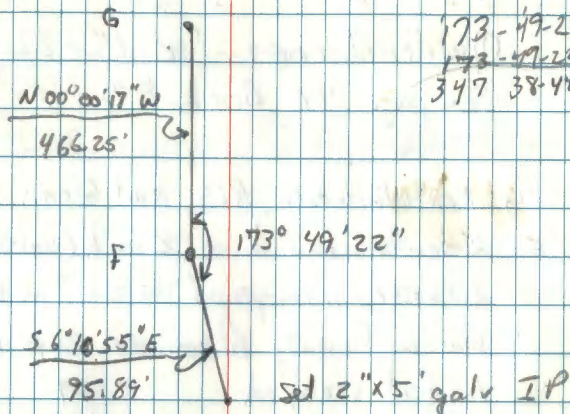 G
173-49-2
173-49-22
347 38-44
N 00°00'17" W
466.25'
F
173° 49' 22"
S 6°10'55" E
95.89'
Set 2" X 5' galv IP